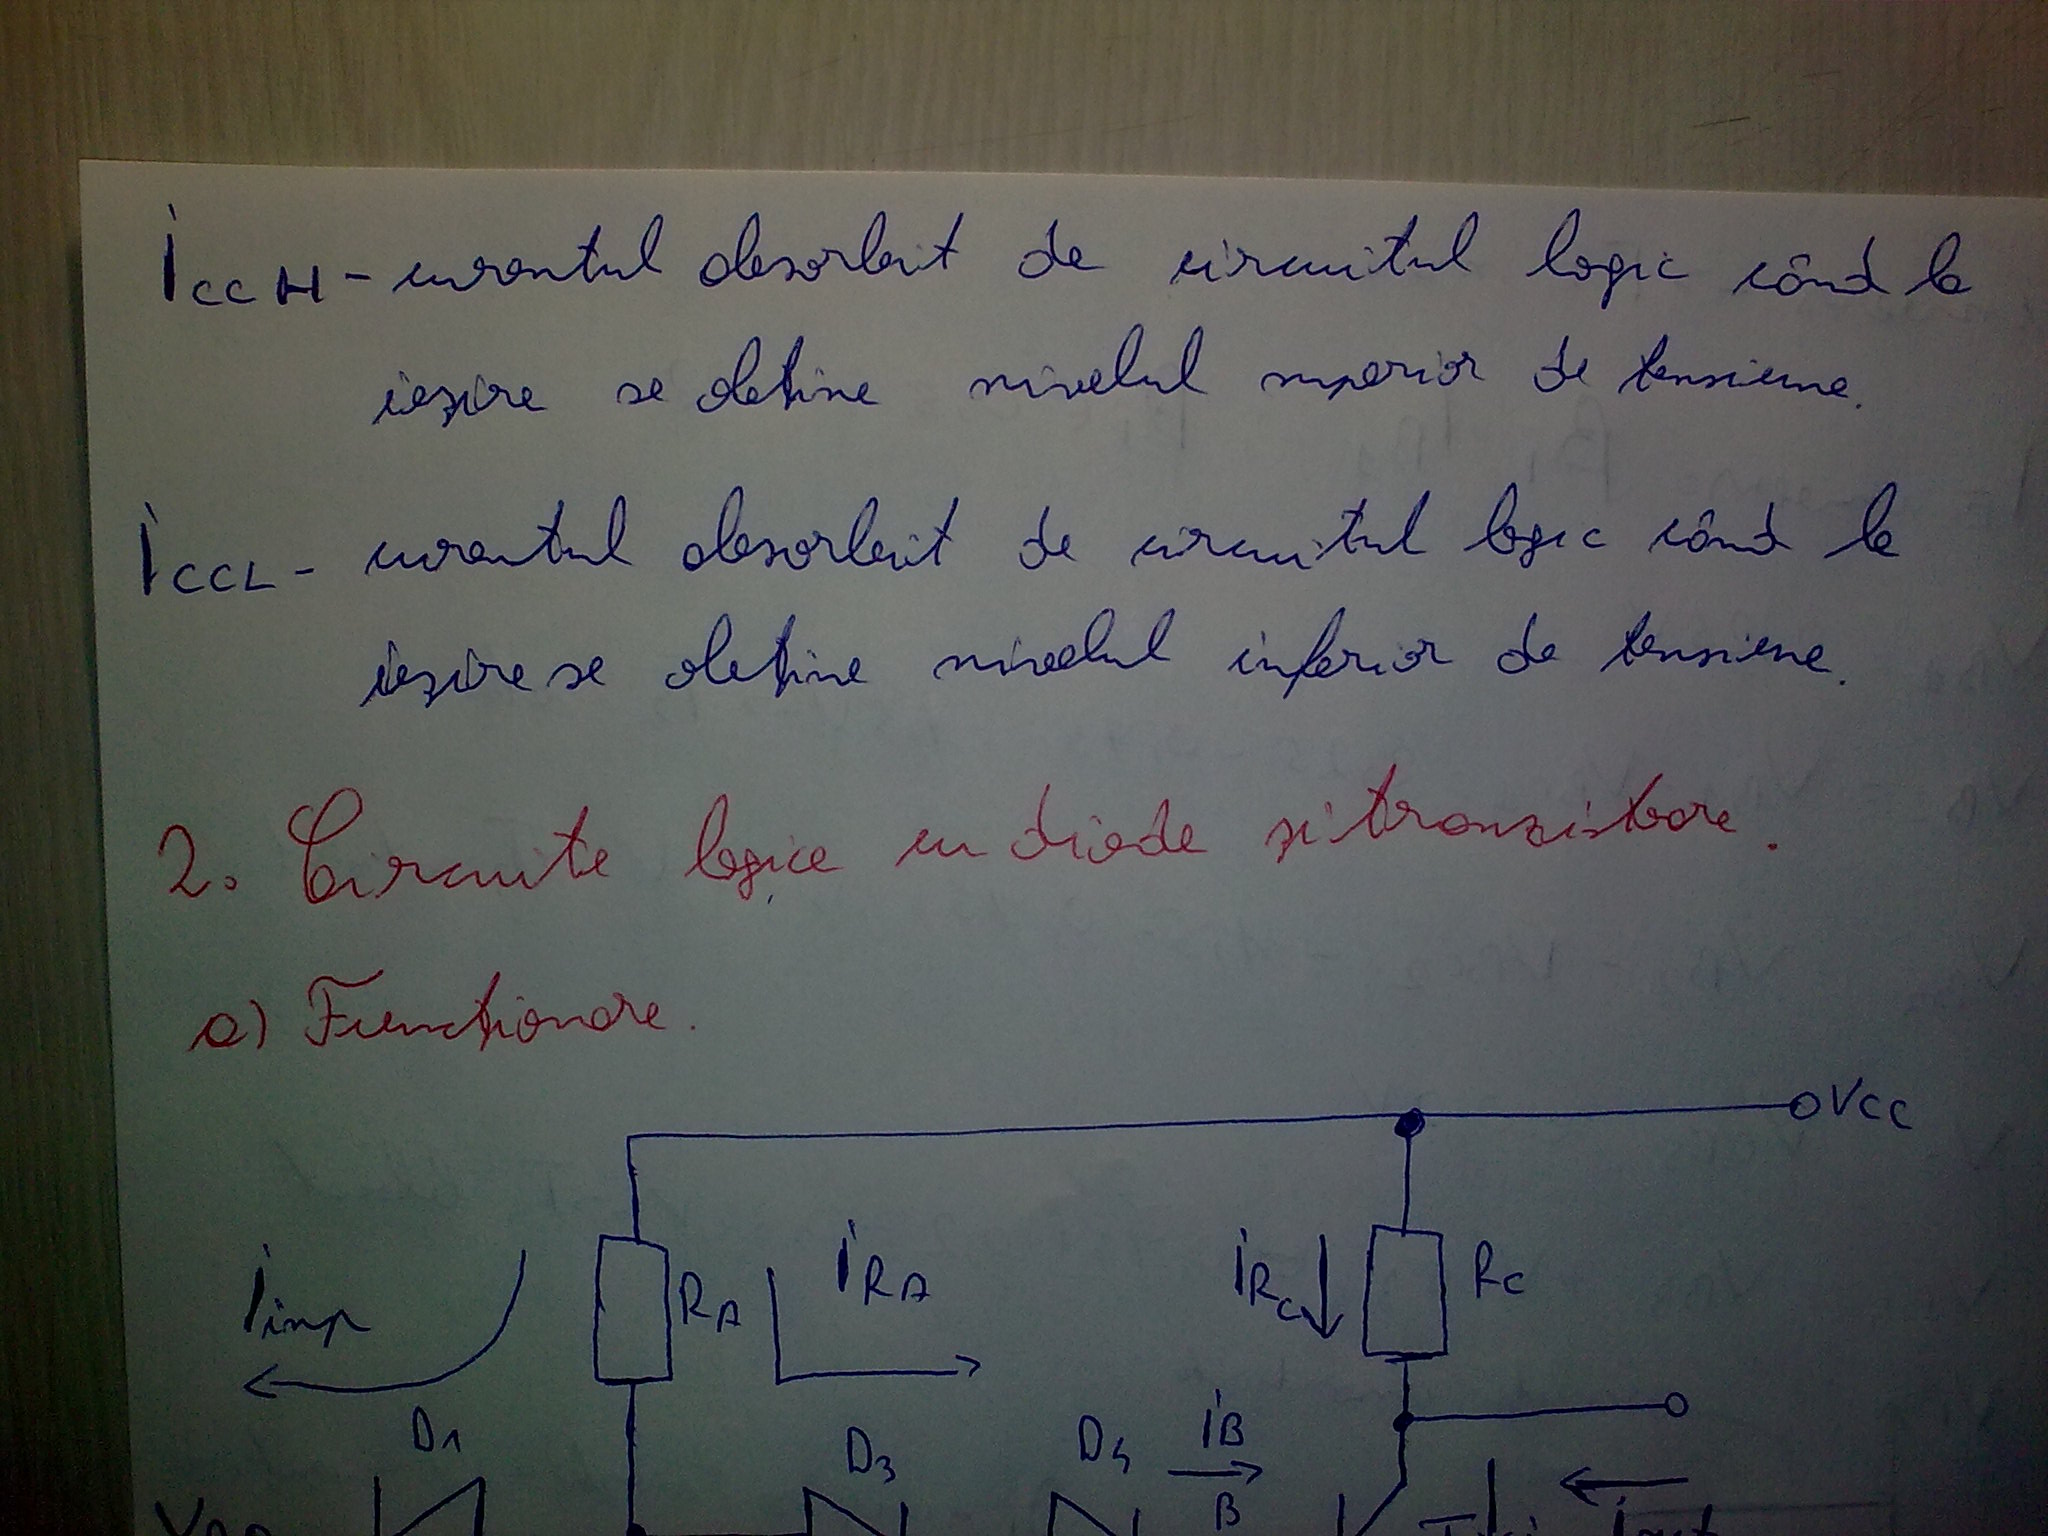 iCCH - curentul absorbit de circuitul logic când la
ieșire se obține nivelul superior de tensiune.
iCCL - curentul absorbit de circuitul logic când la
ieșire se obține nivelul inferior de tensiune.
2. Circuite logice cu diode și tranzistoare.
a) Funcționare.
VCC
iinp RA iRA iRC RC
D1 D3 D4 iB
B